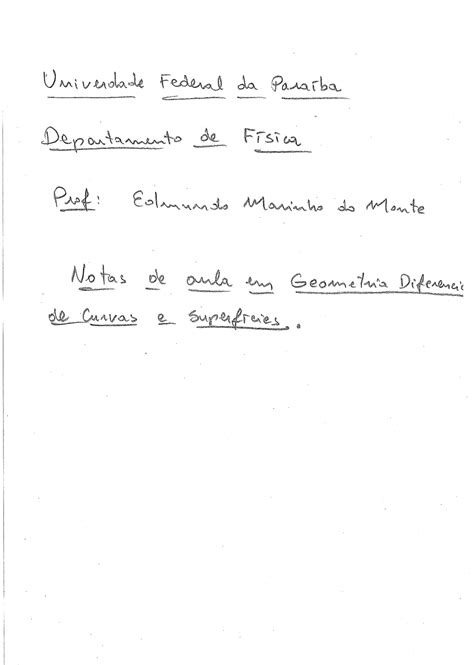 Universdade Federal da Paraíba
Departamento de Física
Prof: Edmundo Marinho do Monte
Notas de aula em Geometria Diferencia
de Curvas e Superfícies.